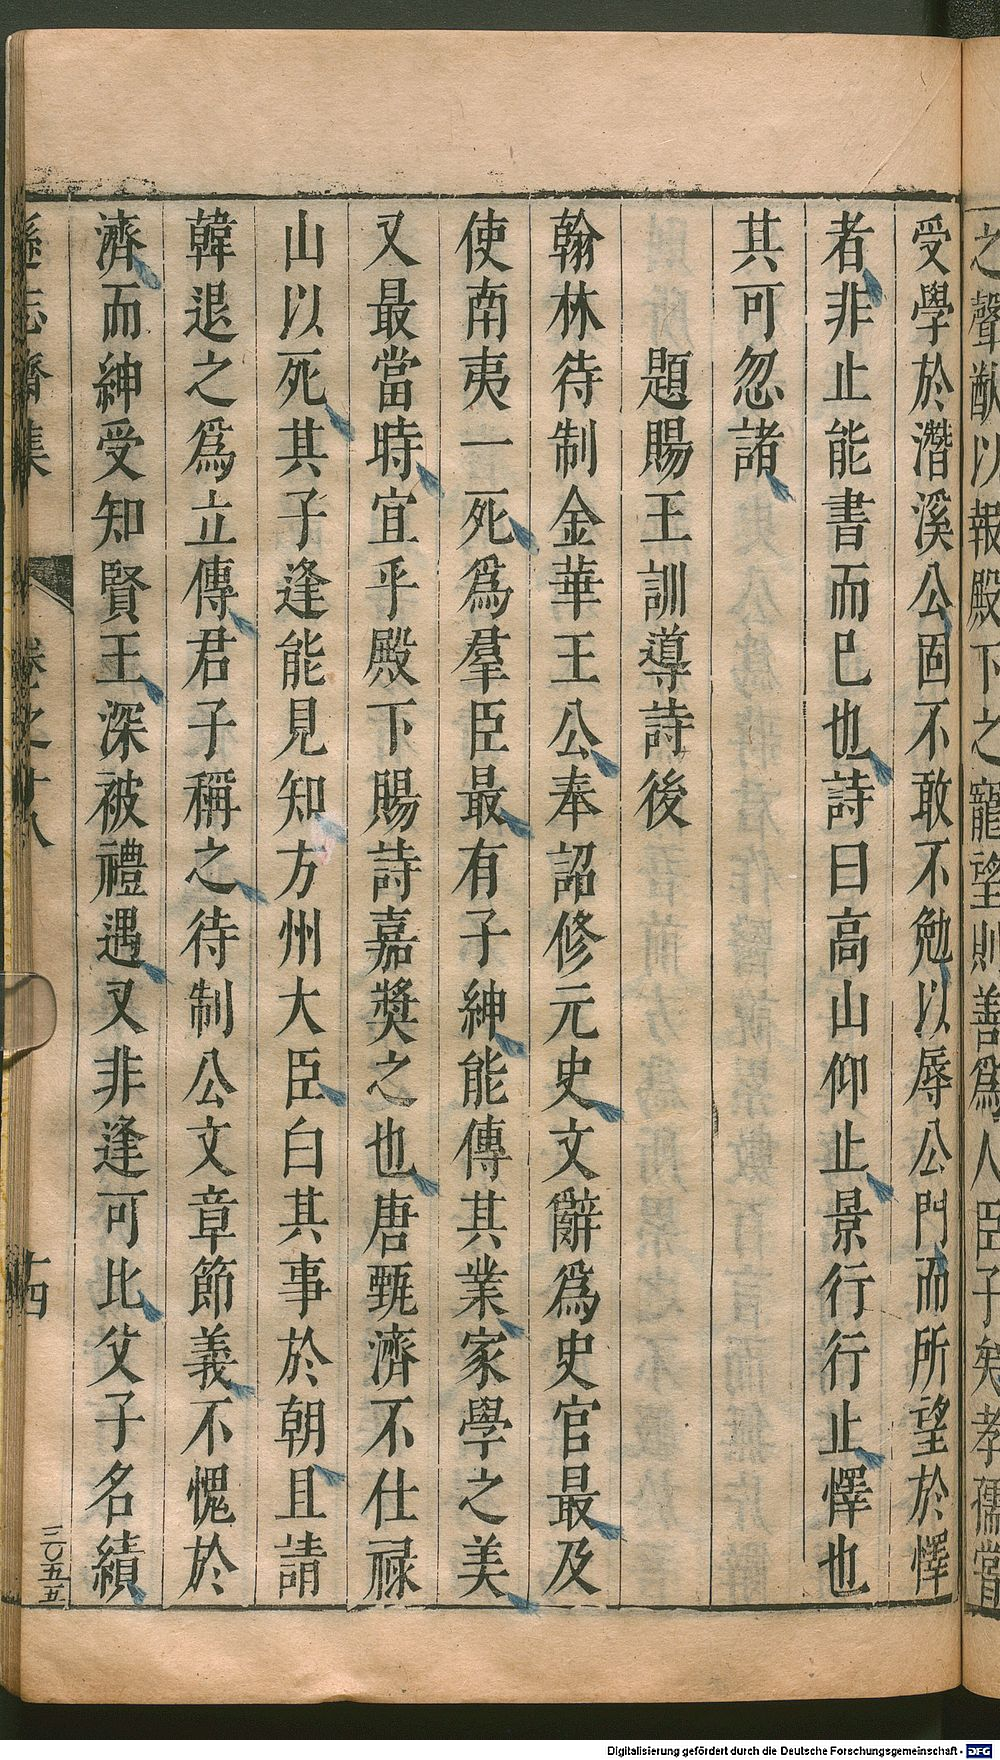 之聲猷以報殿下之寵望則善爲人臣子矣孝孺嘗
受學於潛溪公固不敢不勉以辱公門而所望於懌
者非止能書而已也詩曰高山仰止景行行止懌也
其可忽諸
題賜王訓導詩後
翰林待制金華王公奉詔修元史文辭爲史官最及
使南夷一死爲羣臣最有子紳能傳其業家學之美
又最當時宜乎殿下賜詩嘉獎之也唐甄濟不仕祿
山以死其子逢能見知方州大臣白其事於朝且請
韓退之爲立傳君子稱之待制公文章節義不愧於
濟而紳受知賢王深被禮遇又非逢可比父子名績
遜志齋集 卷之十八 十四
三〇五五
Digitalisierung gefördert durch die Deutsche Forschungsgemeinschaft - DFG